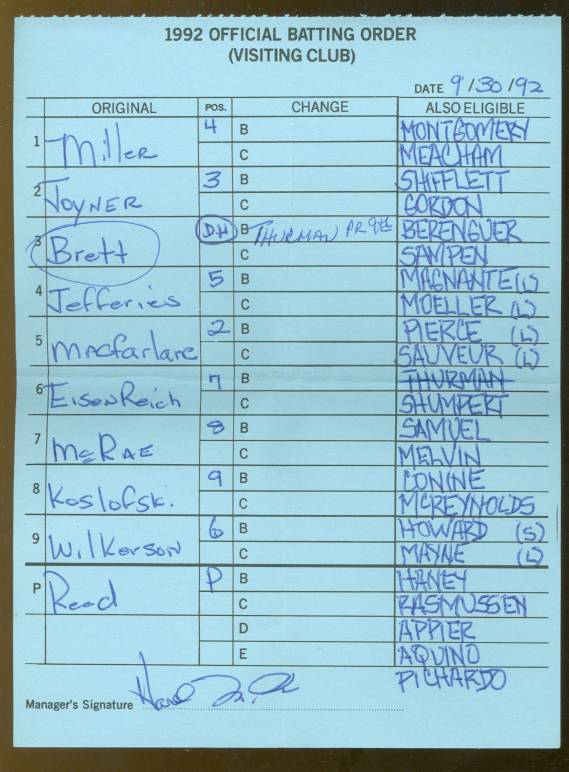 1992 OFFICIAL BATTING ORDER
(VISITING CLUB)
DATE 9/30/92
ORIGINAL POS. CHANGE ALSO ELIGIBLE
1 Miller 4 B MONTGOMERY
C MEACHAM
2 JOYNER 3 B SHIFFLETT
C GORDON
3 Brett D.H B THURMAN PR 9th BERENGUER
C SAMPEN
4 Jefferies 5 B MAGNANTE (L)
C MOELLER (L)
5 Macfarlane 2 B PIERCE (L)
C SAUVEUR (L)
6 EisenReich 7 B THURMAN
C SHUMPERT
7 McRAE 8 B SAMUEL
C MELVIN
8 Koslofski 9 B CONINE
C MCREYNOLDS
9 Wilkerson 6 B HOWARD (S)
C MAYNE (L)
P Reed P B HANEY
C RASMUSSEN
D APPIER
E AQUINO
PICHARDO
Manager's Signature